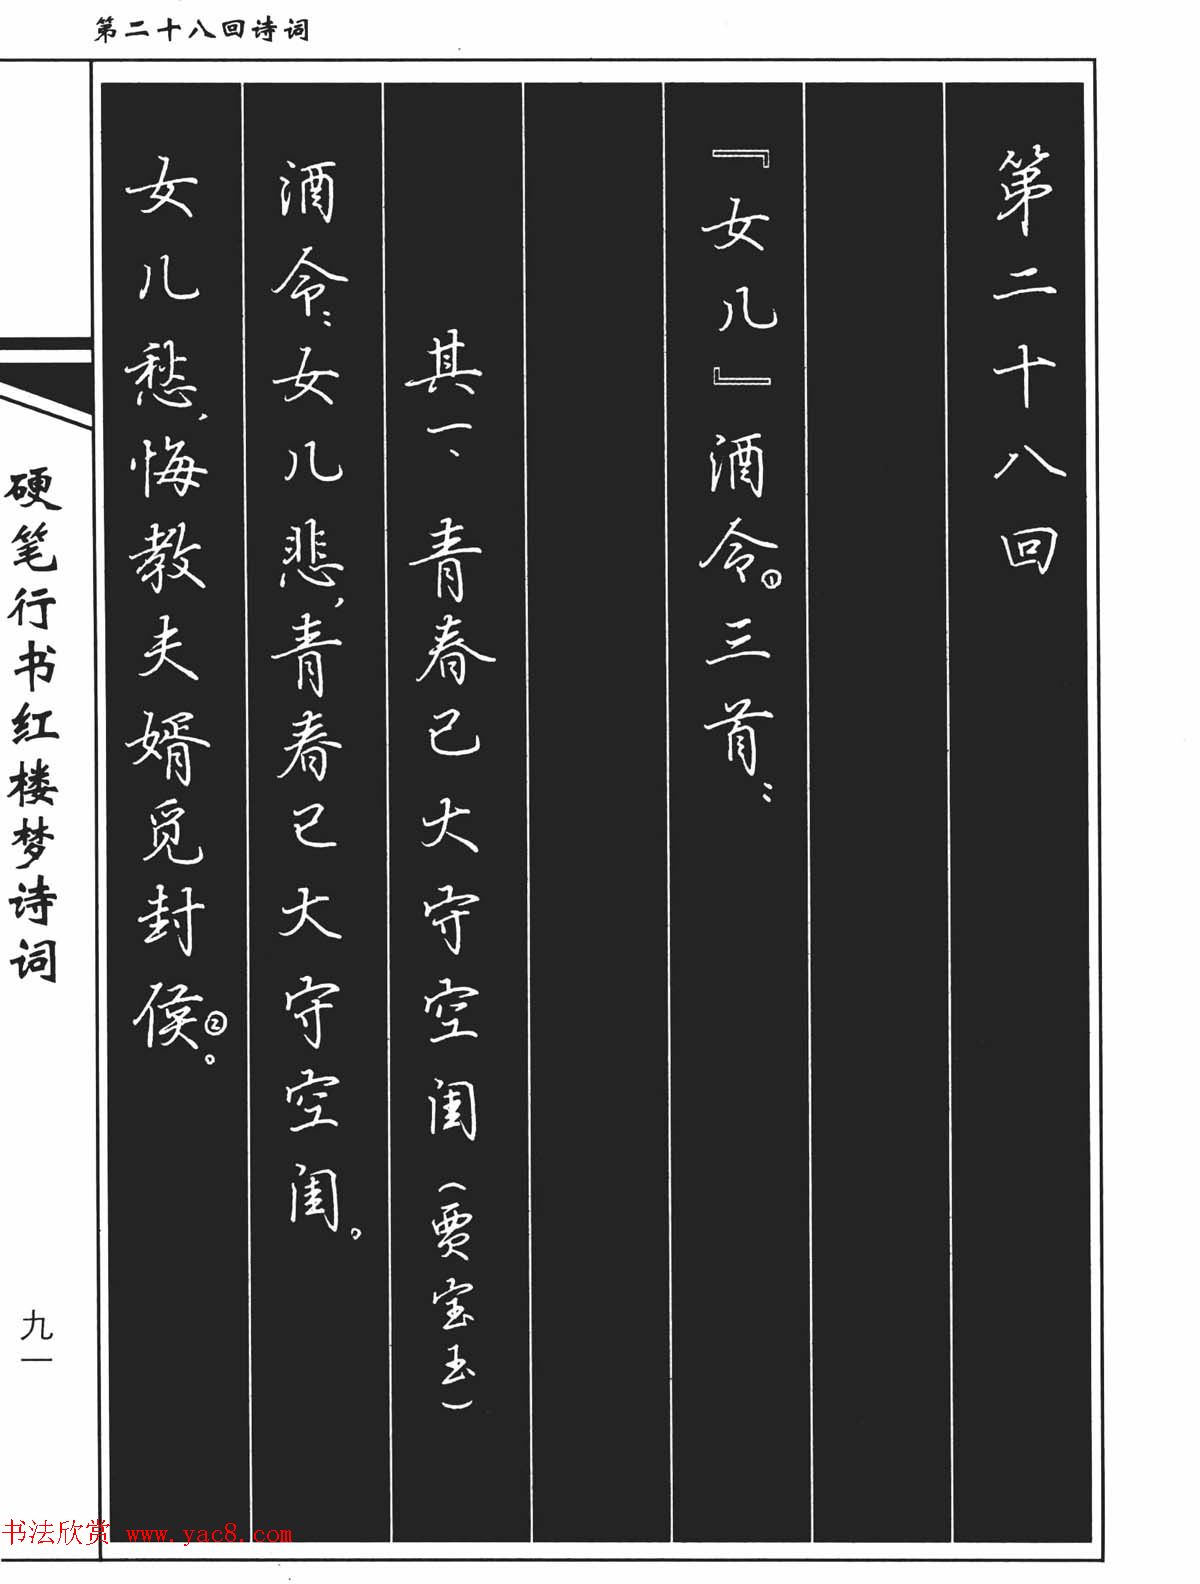 第二十八回诗词
第二十八回
『女儿』酒令①三首：
其一、青春已大守空闺（贾宝玉）
酒令：女儿悲，青春已大守空闺。
女儿愁，悔教夫婿觅封侯②。
硬笔行书红楼梦诗词
九一
书法欣赏 www.yac8.com